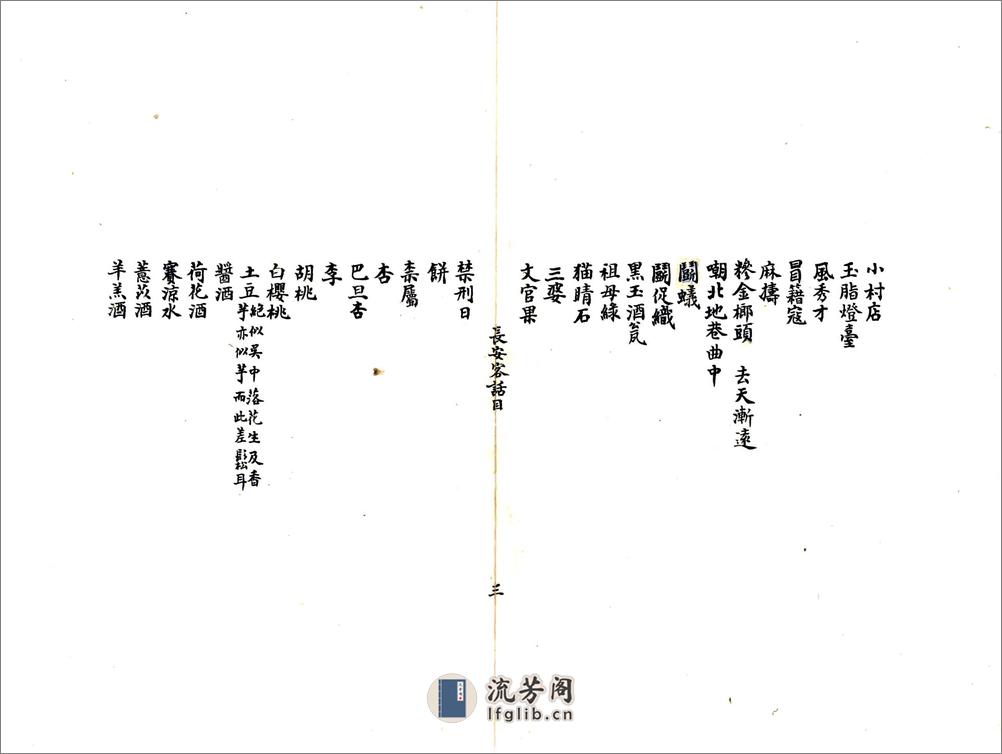 小村店
玉脂燈臺
風秀才
冒籍寇
麻擣
糝金榔頭　去天漸遠
嘲北地巷曲中
鬬蟻
鬬促織
黑玉酒瓮
祖母綠
猫睛石
三婆
文官果
長安客話目
三
禁刑日
餅
柰屬
杏
巴旦杏
李
胡桃
白櫻桃
土豆 絕似吳中落花生及香
芋亦似芋而此差鬆耳
醬酒
荷花酒
賽涼水
薏苡酒
羊羔酒
流芳阁
lfglib.cn